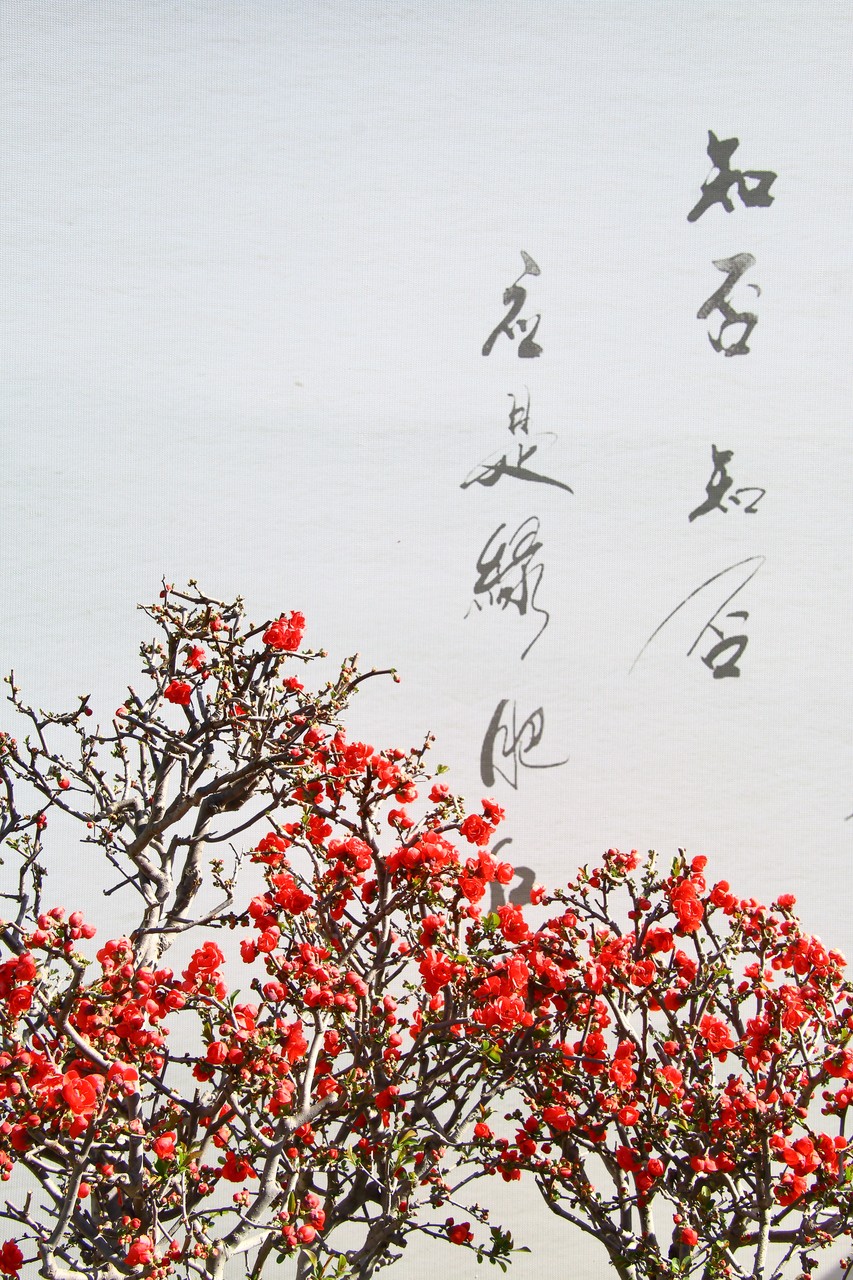 知否知否
应是綠肥